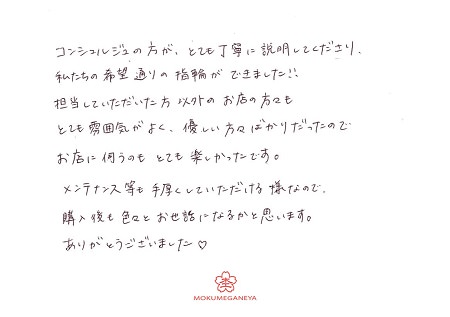 コンシェルジュの方が、とても丁寧に説明してくださり、
私たちの希望通りの指輪ができました!!
担当していただいた方以外のお店の方々も
とても雰囲気がよく、優しい方々ばかりだったので
お店に伺うのもとても楽しかったです。
メンテナンス等も手厚くしていただける様なので、
購入後も色々とお世話になるかと思います。
ありがとうございました♡
MOKUMEGANEYA